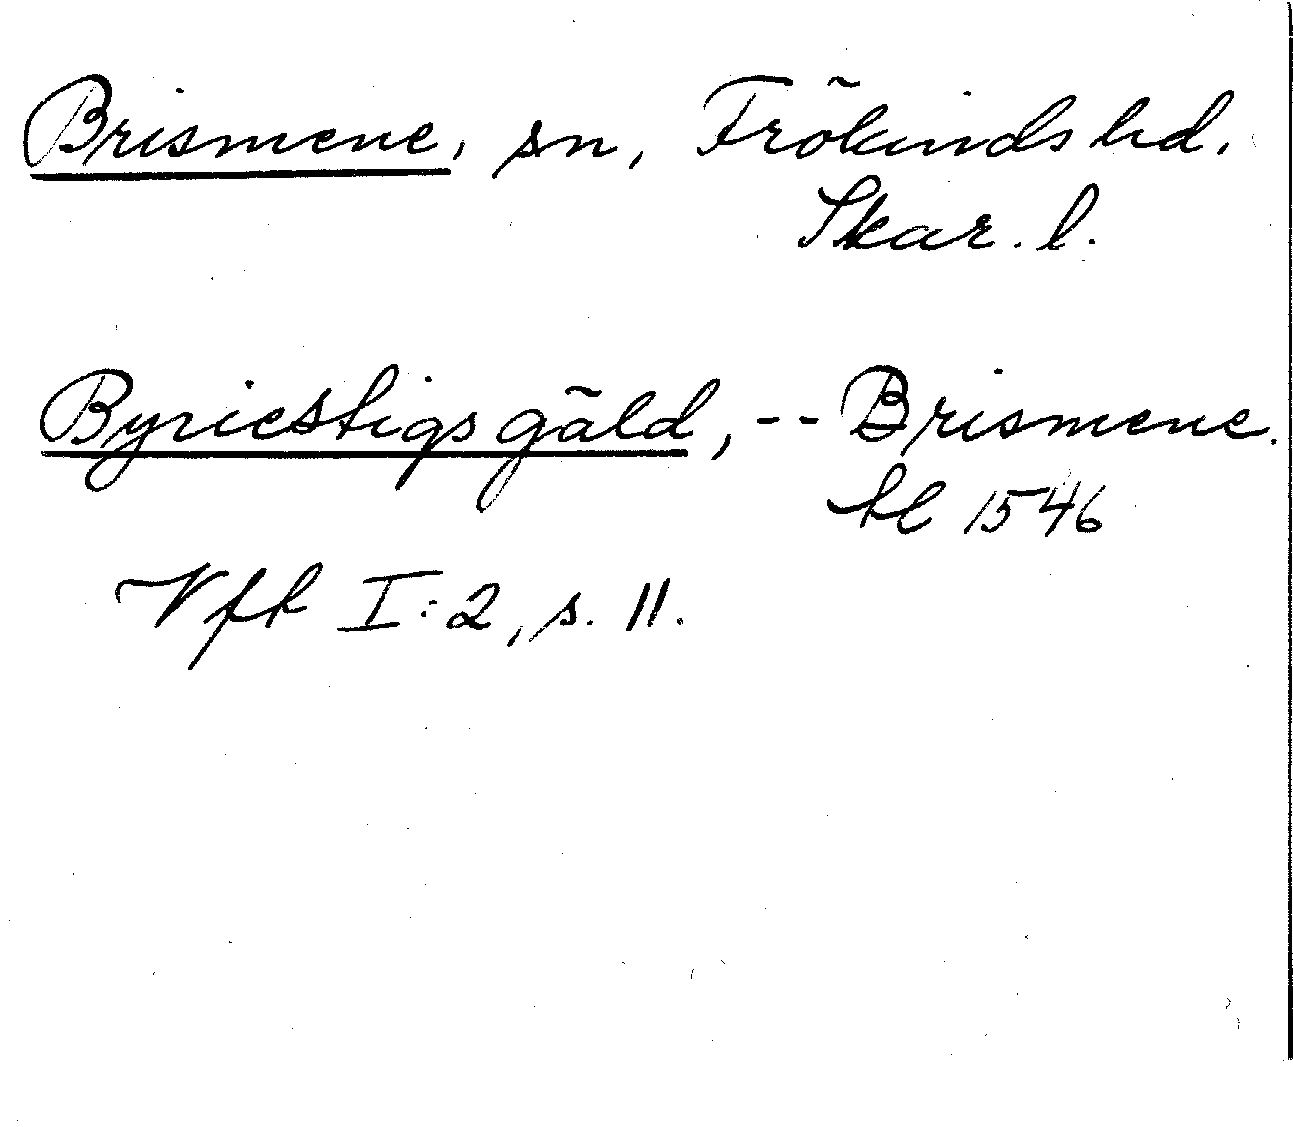 Brismene, sn, Frökinds hd.
Skar. l.
Byriestigs gäld, -- Brismene.
hl 1546
Vfh I:2, s. 11.